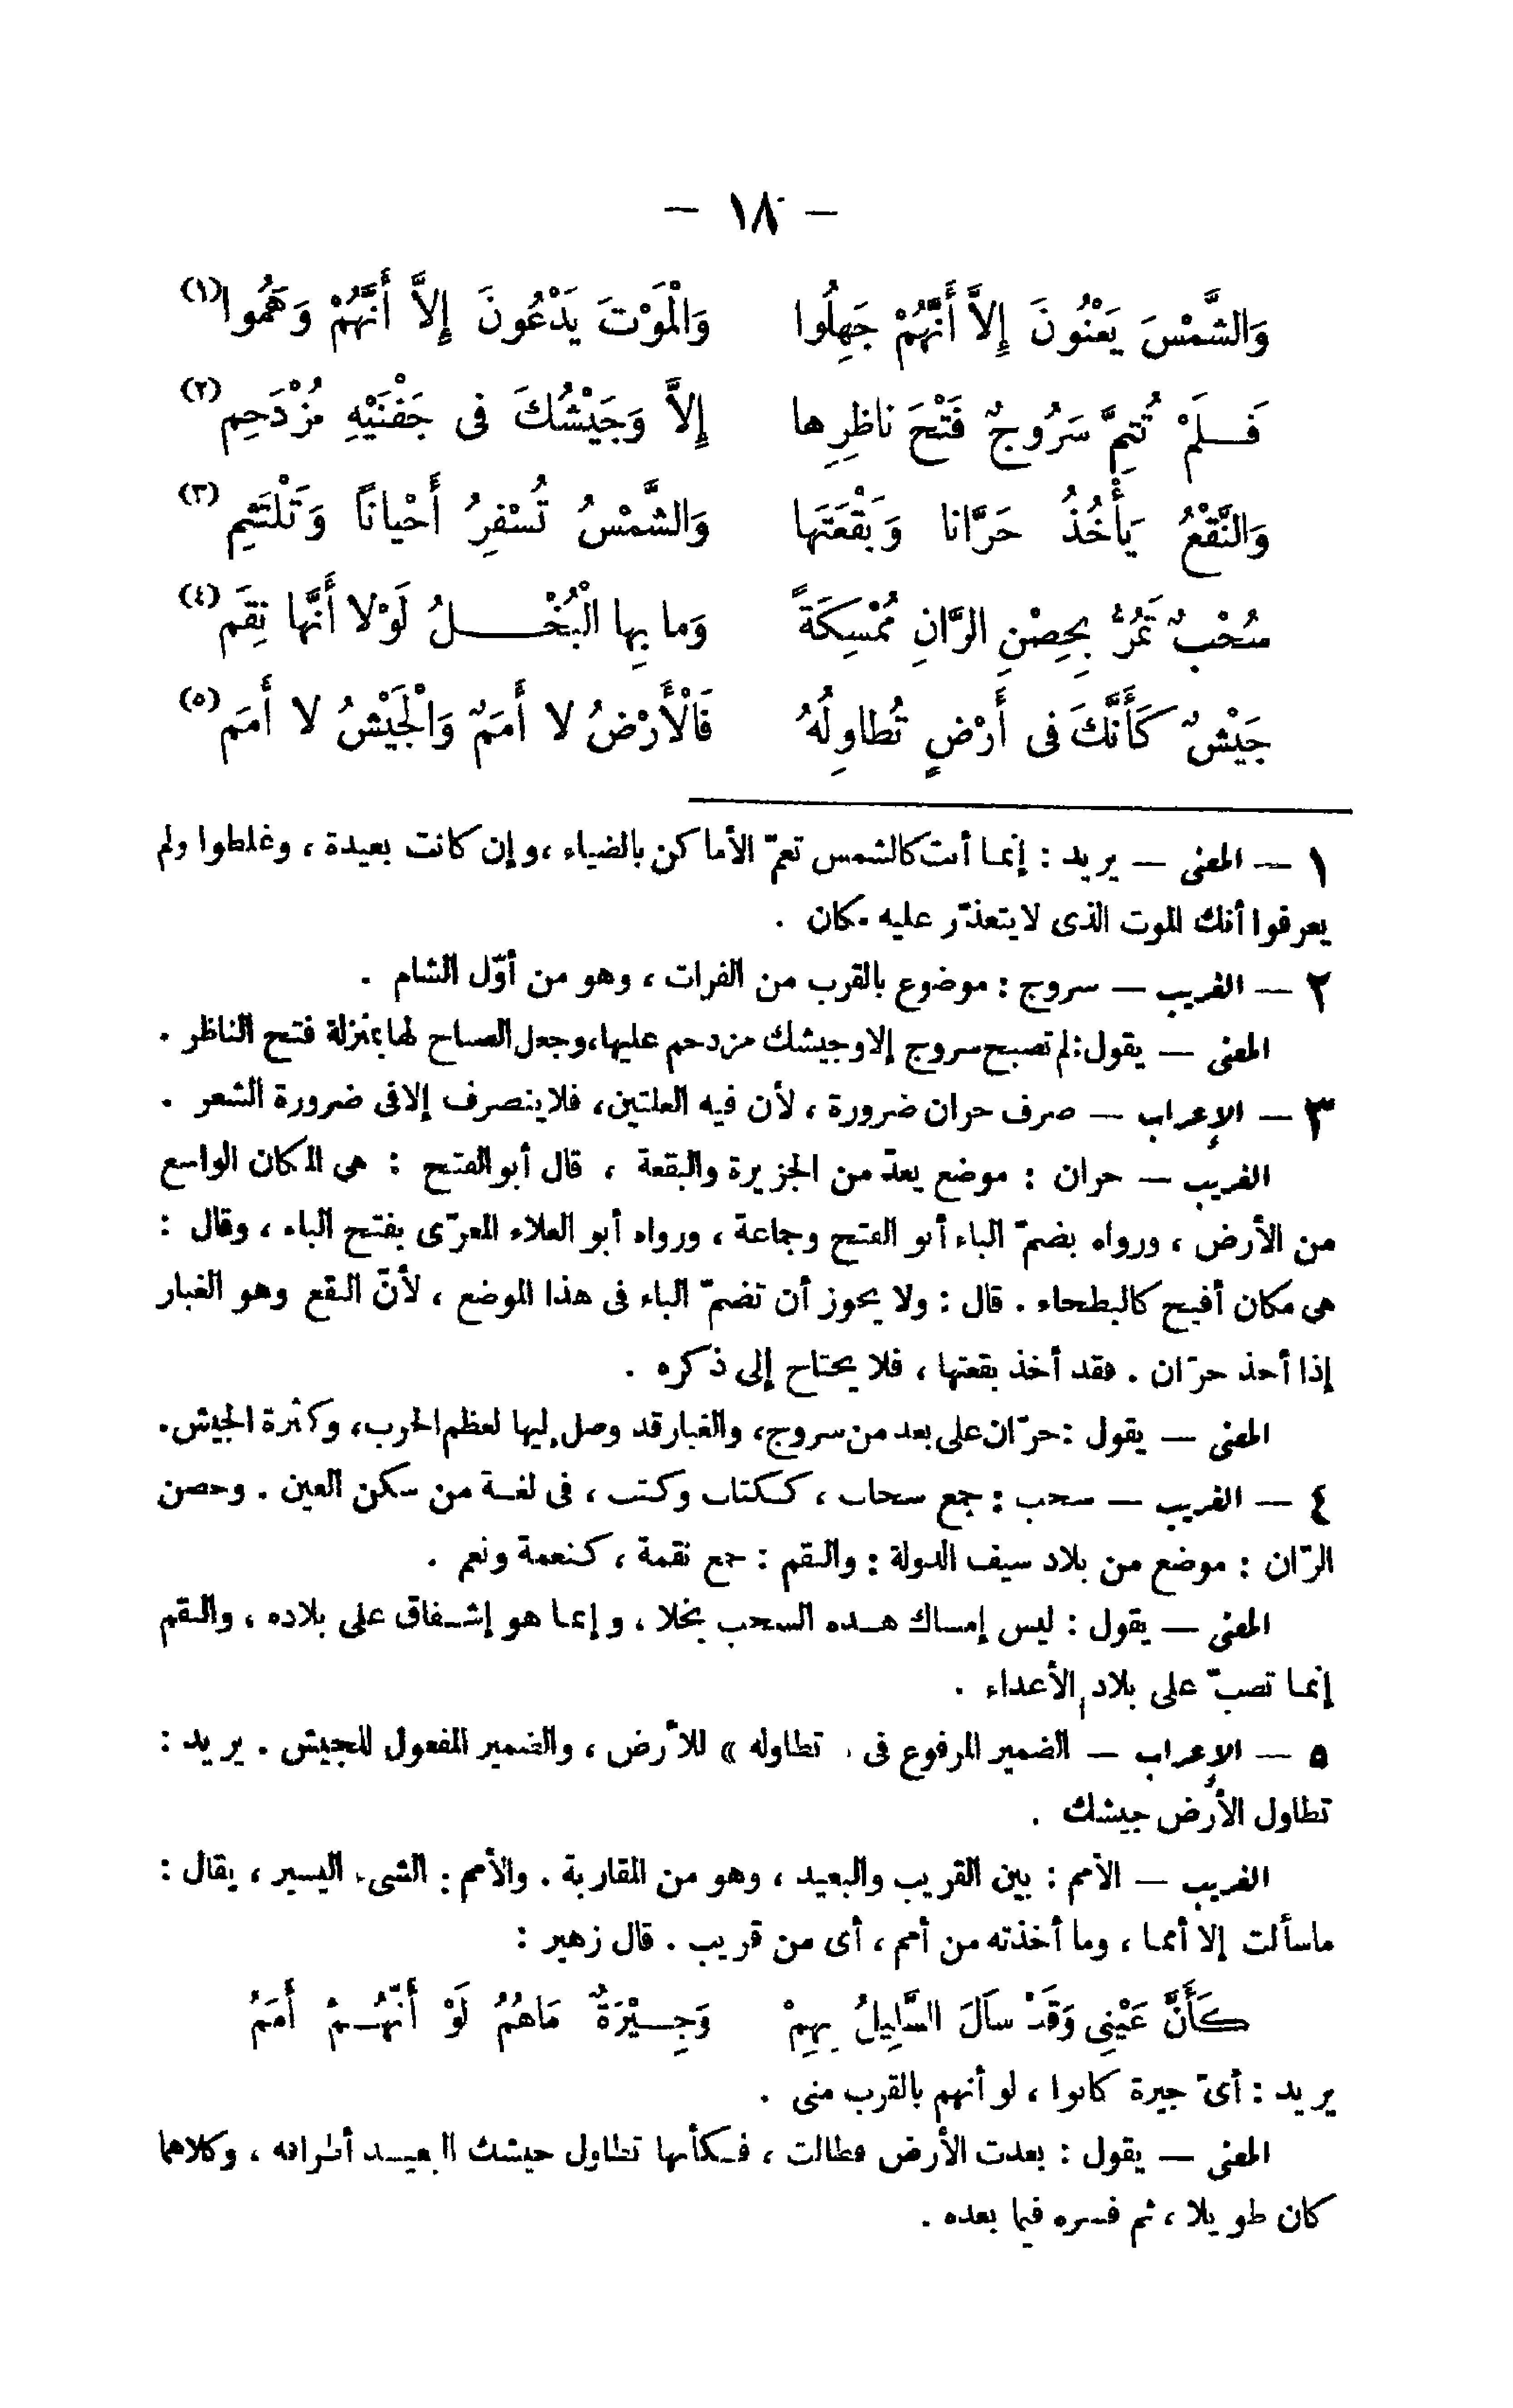 — ١٨ —
وَالشَّمْسَ يَعْنُونَ إِلاَّ أَنَّهُمْ جَهِلُوا وَالْمَوْتَ يَدْعُونَ إِلاَّ أَنَّهُمْ وَهَمُوا (١)
فَـلَمْ تُتِمَّ سَرُوجٌ فَتْحَ ناظِرِها إِلاَّ وَجَيْشُكَ فى جَفْنَيْهِ مُزْدَحِمِ (٢)
وَالنَّقْعُ يَأْخُذُ حَرَّانا وَبَقْعَتَها وَالشَّمْسُ تُسْفِرُ أَحْيانًا وَتَلْتَثِمِ (٣)
سُحْبٌ تَمُرُّ بِحِصْنِ الرَّانِ مُمْسِكَةً وَما بِها الْبُخْـــلُ لَوْلا أَنَّها نِقَم (٤)
جَيْشٌ كَأَنَّكَ فى أَرْضٍ تُطاوِلُهُ فَالْأَرْضُ لا أَمَمٌ وَالْجَيْشُ لا أَمَم (٥)
١ — المعنى — يريد : إنما أنت كالشمس تعمّ الأماكن بالضياء ، وإن كانت بعيدة ، وغلطوا ولم
يعرفوا أنك الموت الذى لايتعذّر عليه مكان .
٢ — الغريب — سروج : موضوع بالقرب من الفرات ، وهو من أوّل الشام .
المعنى — يقول : لم تصبح سروج إلا وجيشك مزدحم عليها، وجعل الصباح لها بمنزلة فتح الناظر .
٣ — الإعراب — صرف حران ضرورة ، لأن فيه العلتين، فلاينصرف إلا فى ضرورة الشعر .
الغريب — حران : موضع يعدّ من الجزيرة والبقعة ، قال أبو الفتح : هى المكان الواسع
من الأرض ، ورواه بضمّ الباء أبو الفتح وجماعة ، ورواه أبو العلاء المعرّى بفتح الباء ، وقال :
هى مكان أفيح كالبطحاء . قال : ولا يجوز أن تضمّ الباء فى هذا الموضع ، لأنّ النقع وهو الغبار
إذا أخذ حرّان . فقد أخذ بقعتها ، فلا يحتاج إلى ذكره .
المعنى — يقول : حرّان على بعد من سروج، والغبار قد وصل إليها لعظم الحرب، وكثرة الجيش .
٤ — الغريب — سحب : جمع سحاب ، ككتاب وكتب ، فى لغـة من سكن العين . وحصن
الرّان : موضع من بلاد سيف الدولة : والنقم : جمع نقمة ، كنعمة ونعم .
المعنى — يقول : ليس إمساك هـذه السحب بخلا ، وإنما هو إشـفاق على بلاده ، والنقم
إنما تصبّ على بلاد الأعداء .
٥ — الإعراب — الضمير المرفوع فى « تطاوله » للأرض ، والضمير المفعول للجيش . يريد :
تطاول الأرض جيشك .
الغريب — الأمم : بين القريب والبعيد ، وهو من المقاربة . والأمم : الشىء اليسير ، يقال :
ماسألت إلا أمما ، وما أخذته من أمم ، أى من قريب . قال زهير :
كَأَنَّ عَيْنِى وَقَدْ سَالَ السَّلِيلُ بِهِمْ وَجِـيْرَةٌ مَاهُمُ لَوْ أَنَّهُـمْ أَمَمُ
يريد : أىّ جيرة كانوا ، لو أنهم بالقرب منى .
المعنى — يقول : بعدت الأرض فطالت ، فـكأنها تطاول جيشك البعيـد أطرافه ، وكلاهما
كان طويلا ، ثم فسره فيما بعده .